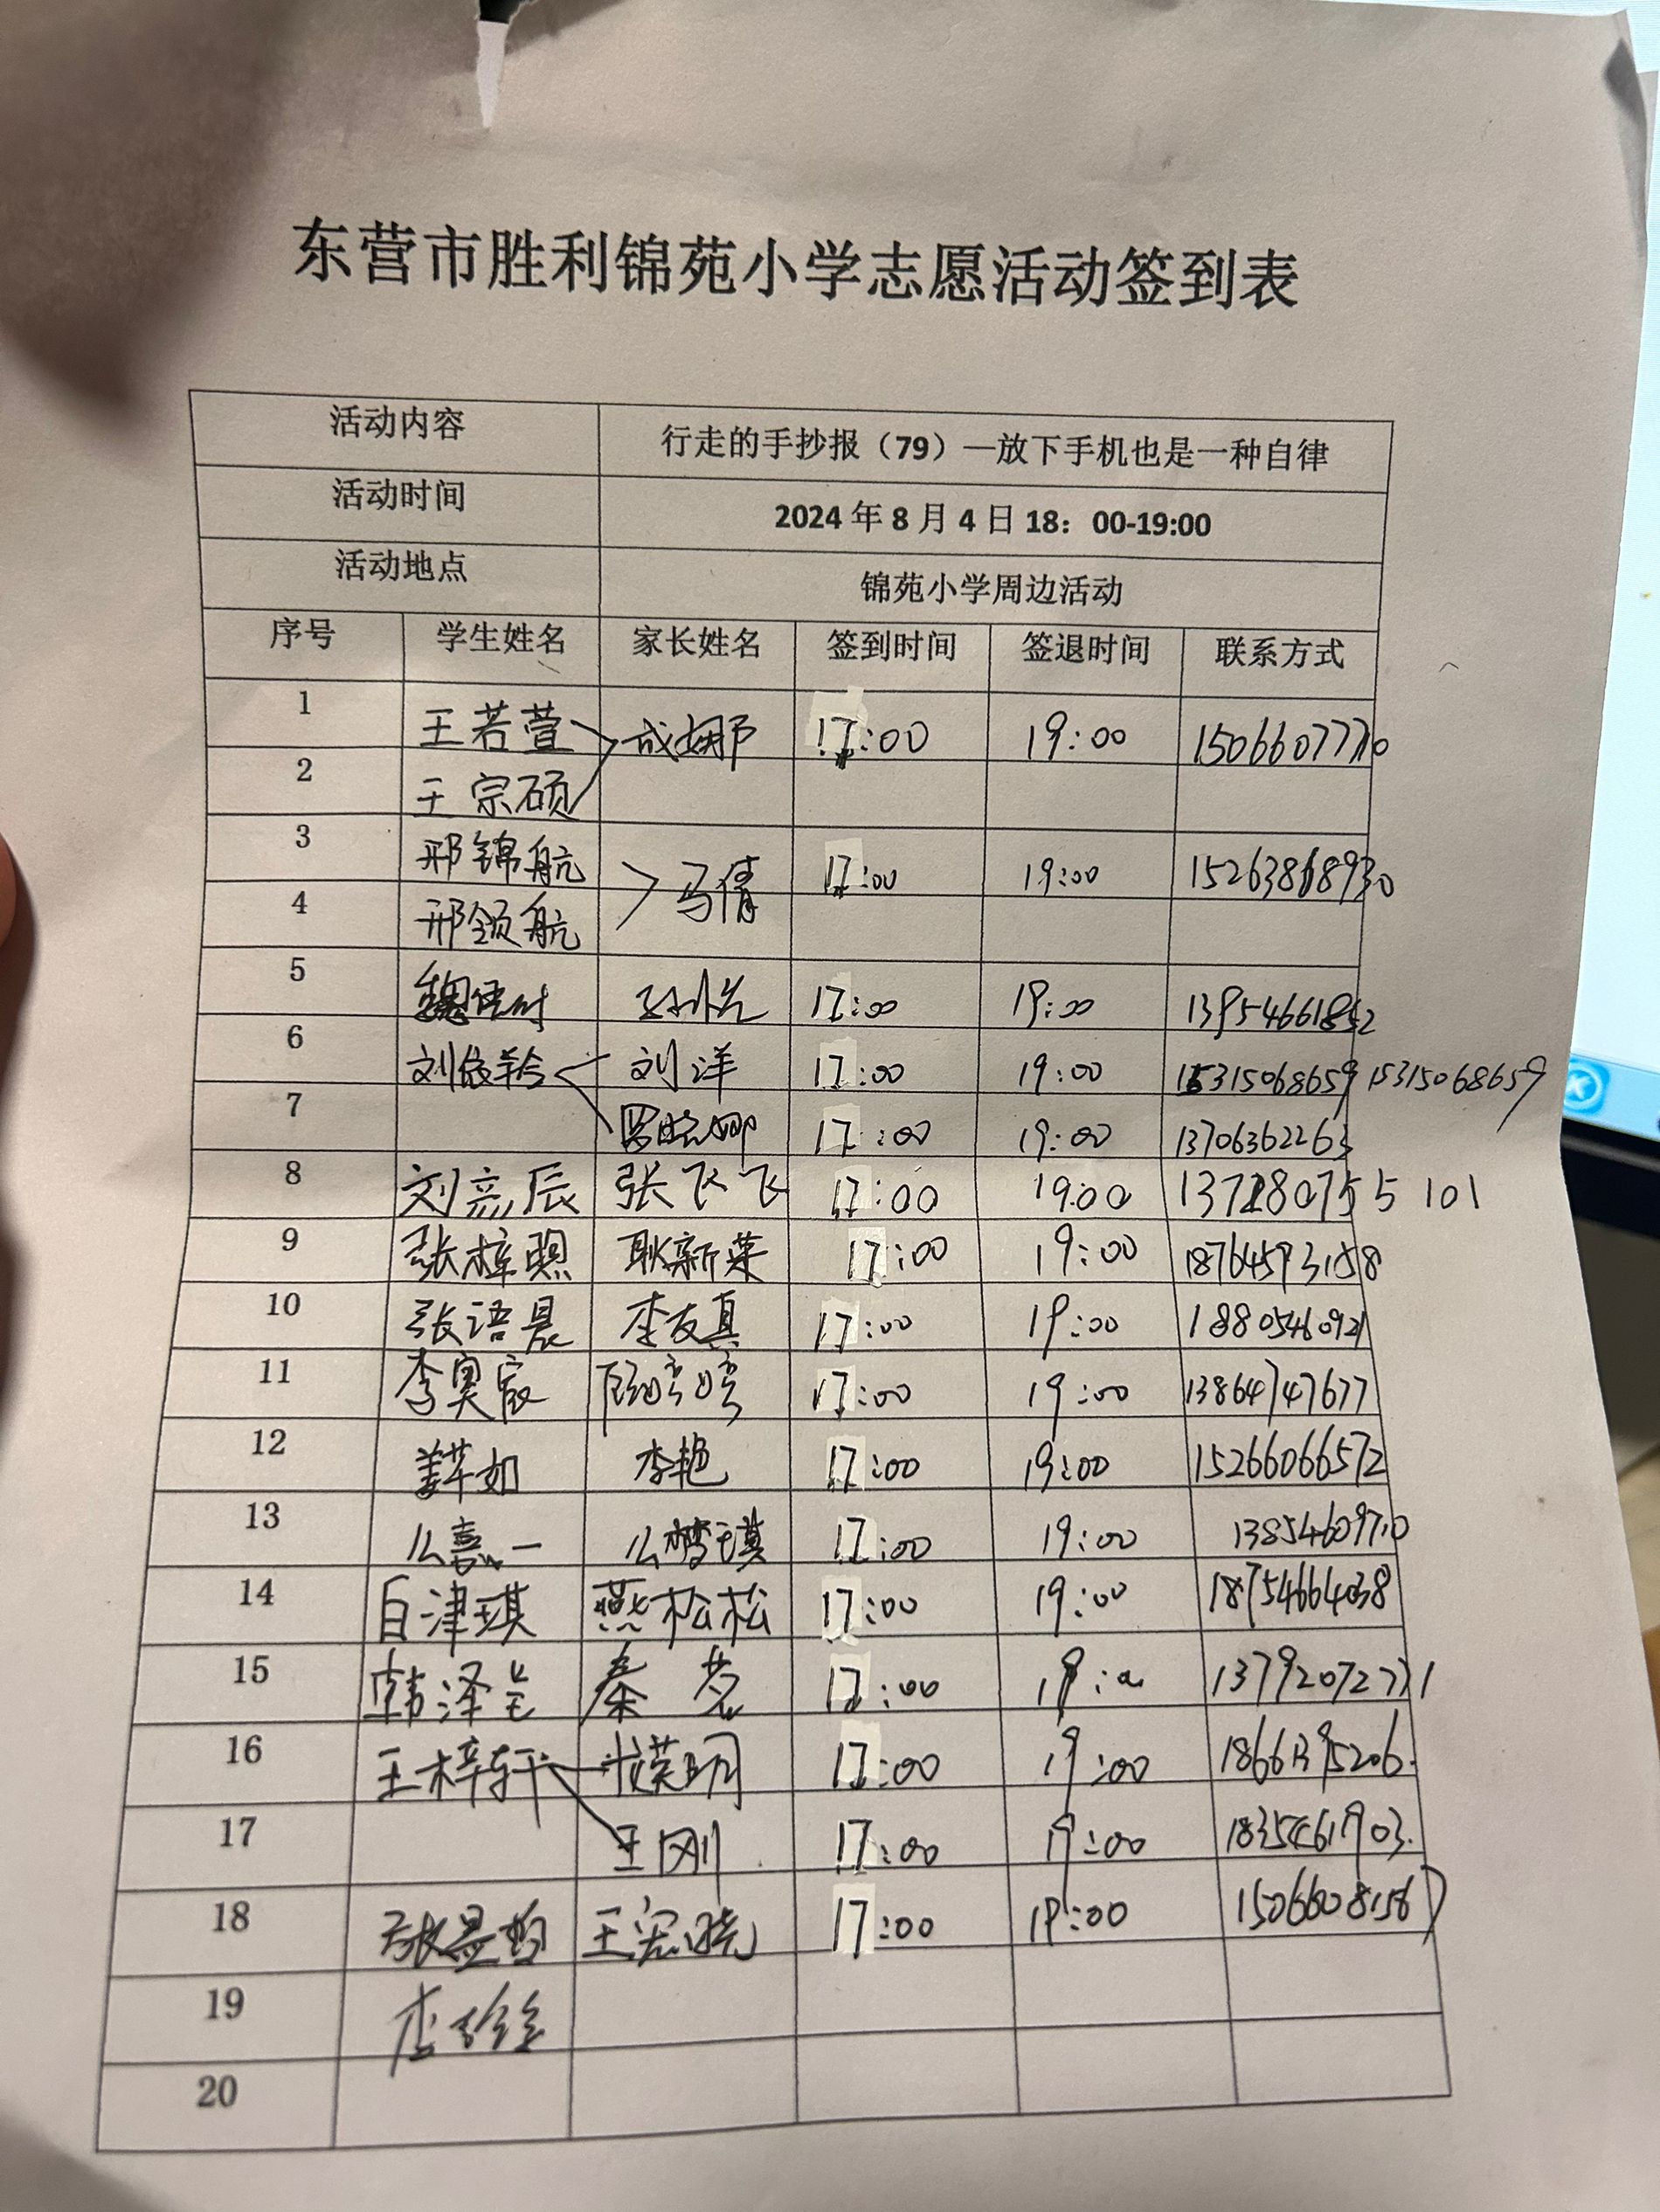 东营市胜利锦苑小学志愿活动签到表
活动内容 行走的手抄报（79）—放下手机也是一种自律
活动时间 2024年8月4日18：00-19:00
活动地点 锦苑小学周边活动
序号 学生姓名 家长姓名 签到时间 签退时间 联系方式
1 王若萱 成娜 17:00 19:00 15066077710
2 王宗硕
3 邢锦航 马倩 17:00 19:00 15263868930
4 邢领航
5 17:00 19:00 13954661852
6 刘 刘洋 17:00 19:00 15315068659 15315068659
7 17:00 19:00 13706362263
8 刘彦辰 张飞飞 17:00 19:00 101
9 张梓煦 耿新菜 17:00 19:00 18764593158
10 张语晨 李友真 17:00 19:00 18805460921
11 李奥宸 17:00 19:00 13864747677
12 姜苹如 李艳 17:00 19:00 15266066572
13 么嘉一 么梦琪 17:00 19:00 13854609710
14 白津琪 燕松松 17:00 19:00 18754664038
15 韩泽 秦 17:00 19:00 13792072771
16 王梓轩 17:00 19:00 18661395206.
17 王刚 17:00 19:00 18354661903.
18 张晨 王宏晓 17:00 19:00 15066081567
19 李
20